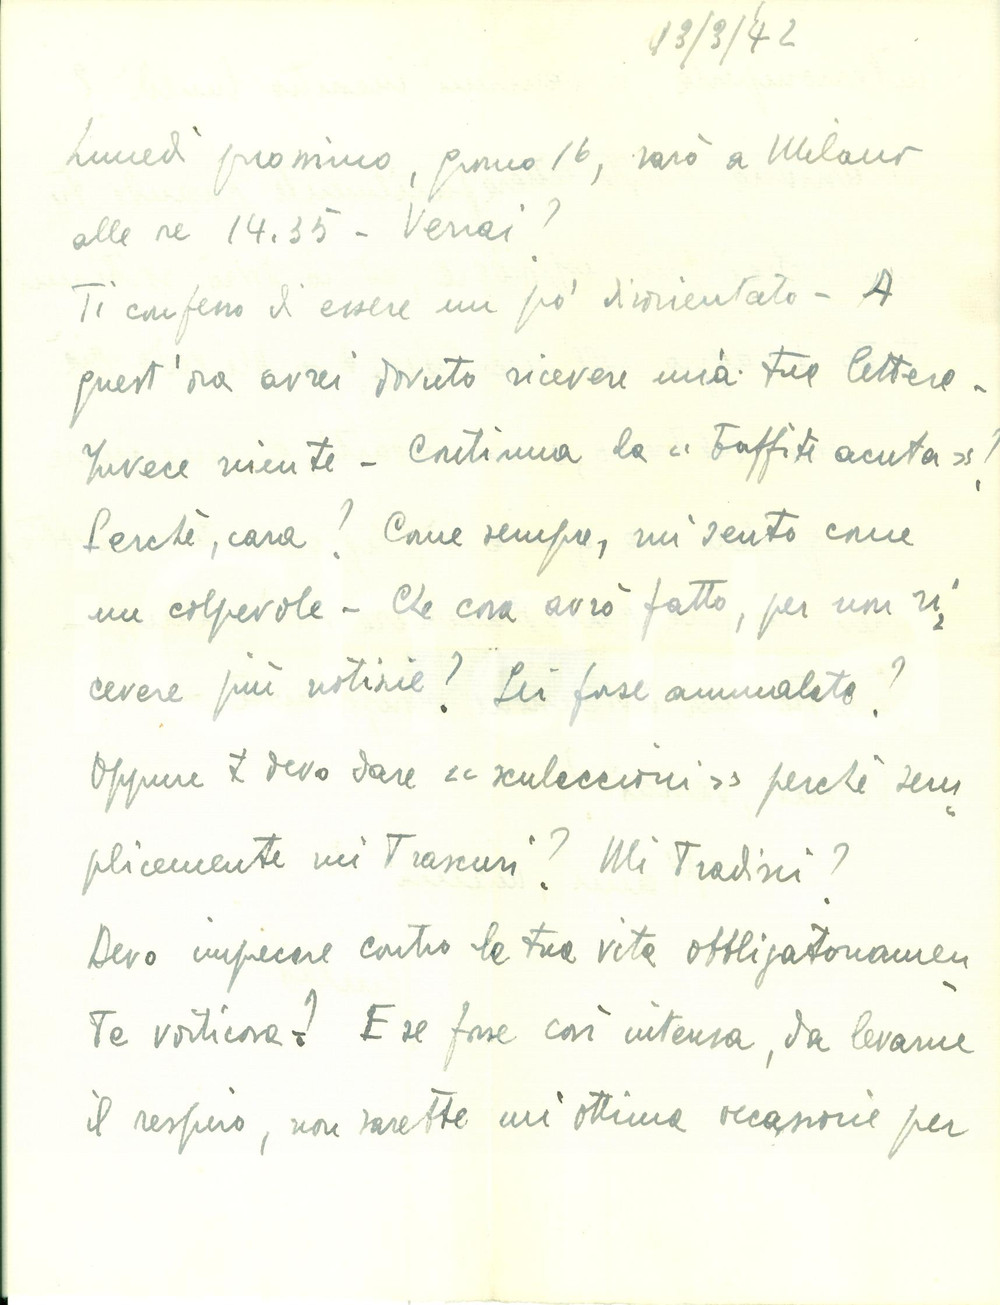 13/3/42
Lunedì prossimo, giorno 16, sarò a Milano
alle re 14.35 - Verrai?
Ti confesso di essere un po' disorientato - A
quest'ora avrei dovuto ricevere una tua lettera -
Invece niente - Continua la « Taffite acuta »!
Perchè, cara? Come sempre, mi sento come
un colpevole - Che cosa avrò fatto, per non ri-
cevere più notizie? Sei forse ammalata?
Oppure ti devo dare « sculaccioni » perchè sem-
plicemente mi trascuri? Mi tradisci?
Devo impecare contro la tua vita obbligatoriamen-
te vorticosa? E se fosse così intensa, da levarne
il respiro, non sarebbe un'ottima occasione per